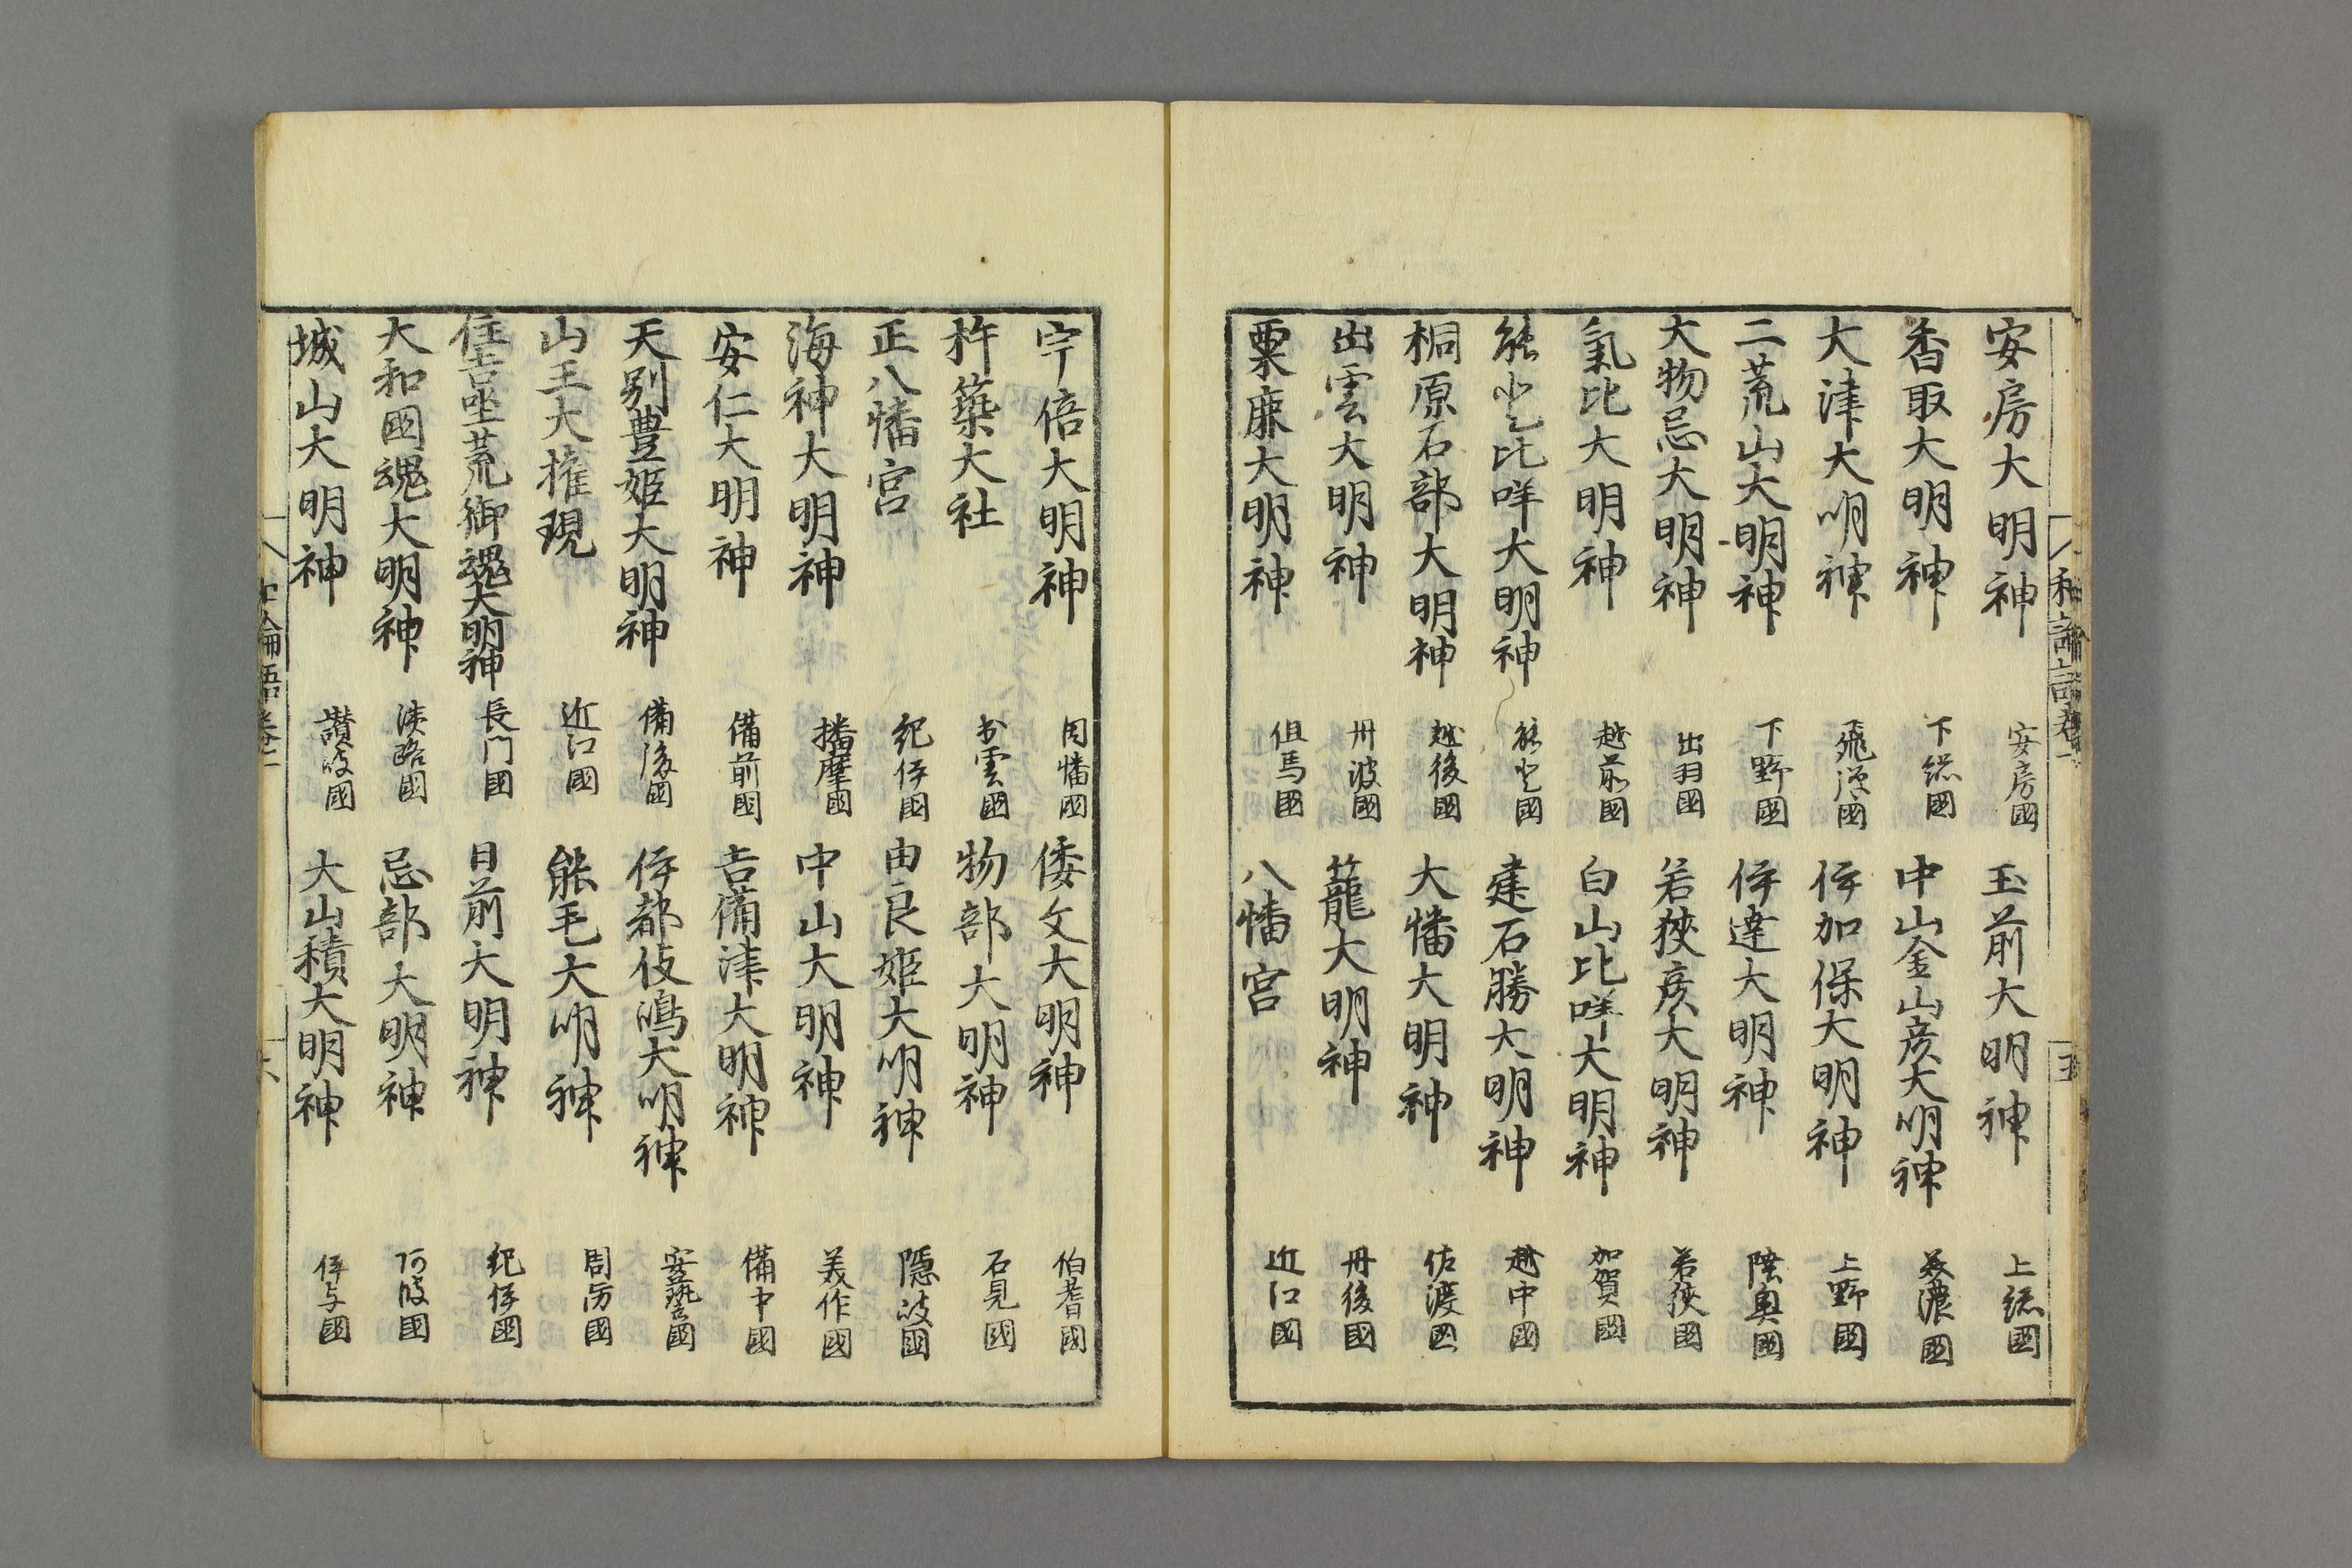 和論語卷一
五
安房大明神 安房國 玉前大明神 上総國
香取大明神 下総國 中山金山彦大明神 美濃國
大津大明神 飛渾國 伊加保大明神 上野國
二荒山大明神 下野國 伊達大明神 陸奥國
大物忌大明神 出羽國 若狹彦大明神 若狹國
氣比大明神 越前國 白山比咩大明神 加賀國
能登比咩大明神 能登國 建石勝大明神 越中國
桐原石部大明神 越後國 大幡大明神 佐渡國
出雲大明神 丹波國 籠大明神 丹後國
粟鹿大明神 但馬國 八幡宮 近江國
宇倍大明神 因幡國 倭文大明神 伯耆國
杵築大社 出雲國 物部大明神 石見國
正八幡宮 紀伊國 由良姫大明神 隠岐國
海神大明神 播摩國 中山大明神 美作國
安仁大明神 備前國 吉備津大明神 備中國
天別豊姫大明神 備後國 伊都伎嶋大明神 安藝國
山王大権現 近江國 熊毛大明神 周防國
住吉坐荒御魂大明神 長門國 日前大明神 紀伊國
大和國魂大明神 淡路國 忌部大明神 阿波國
城山大明神 讃岐國 大山積大明神 伊与國
论語卷一